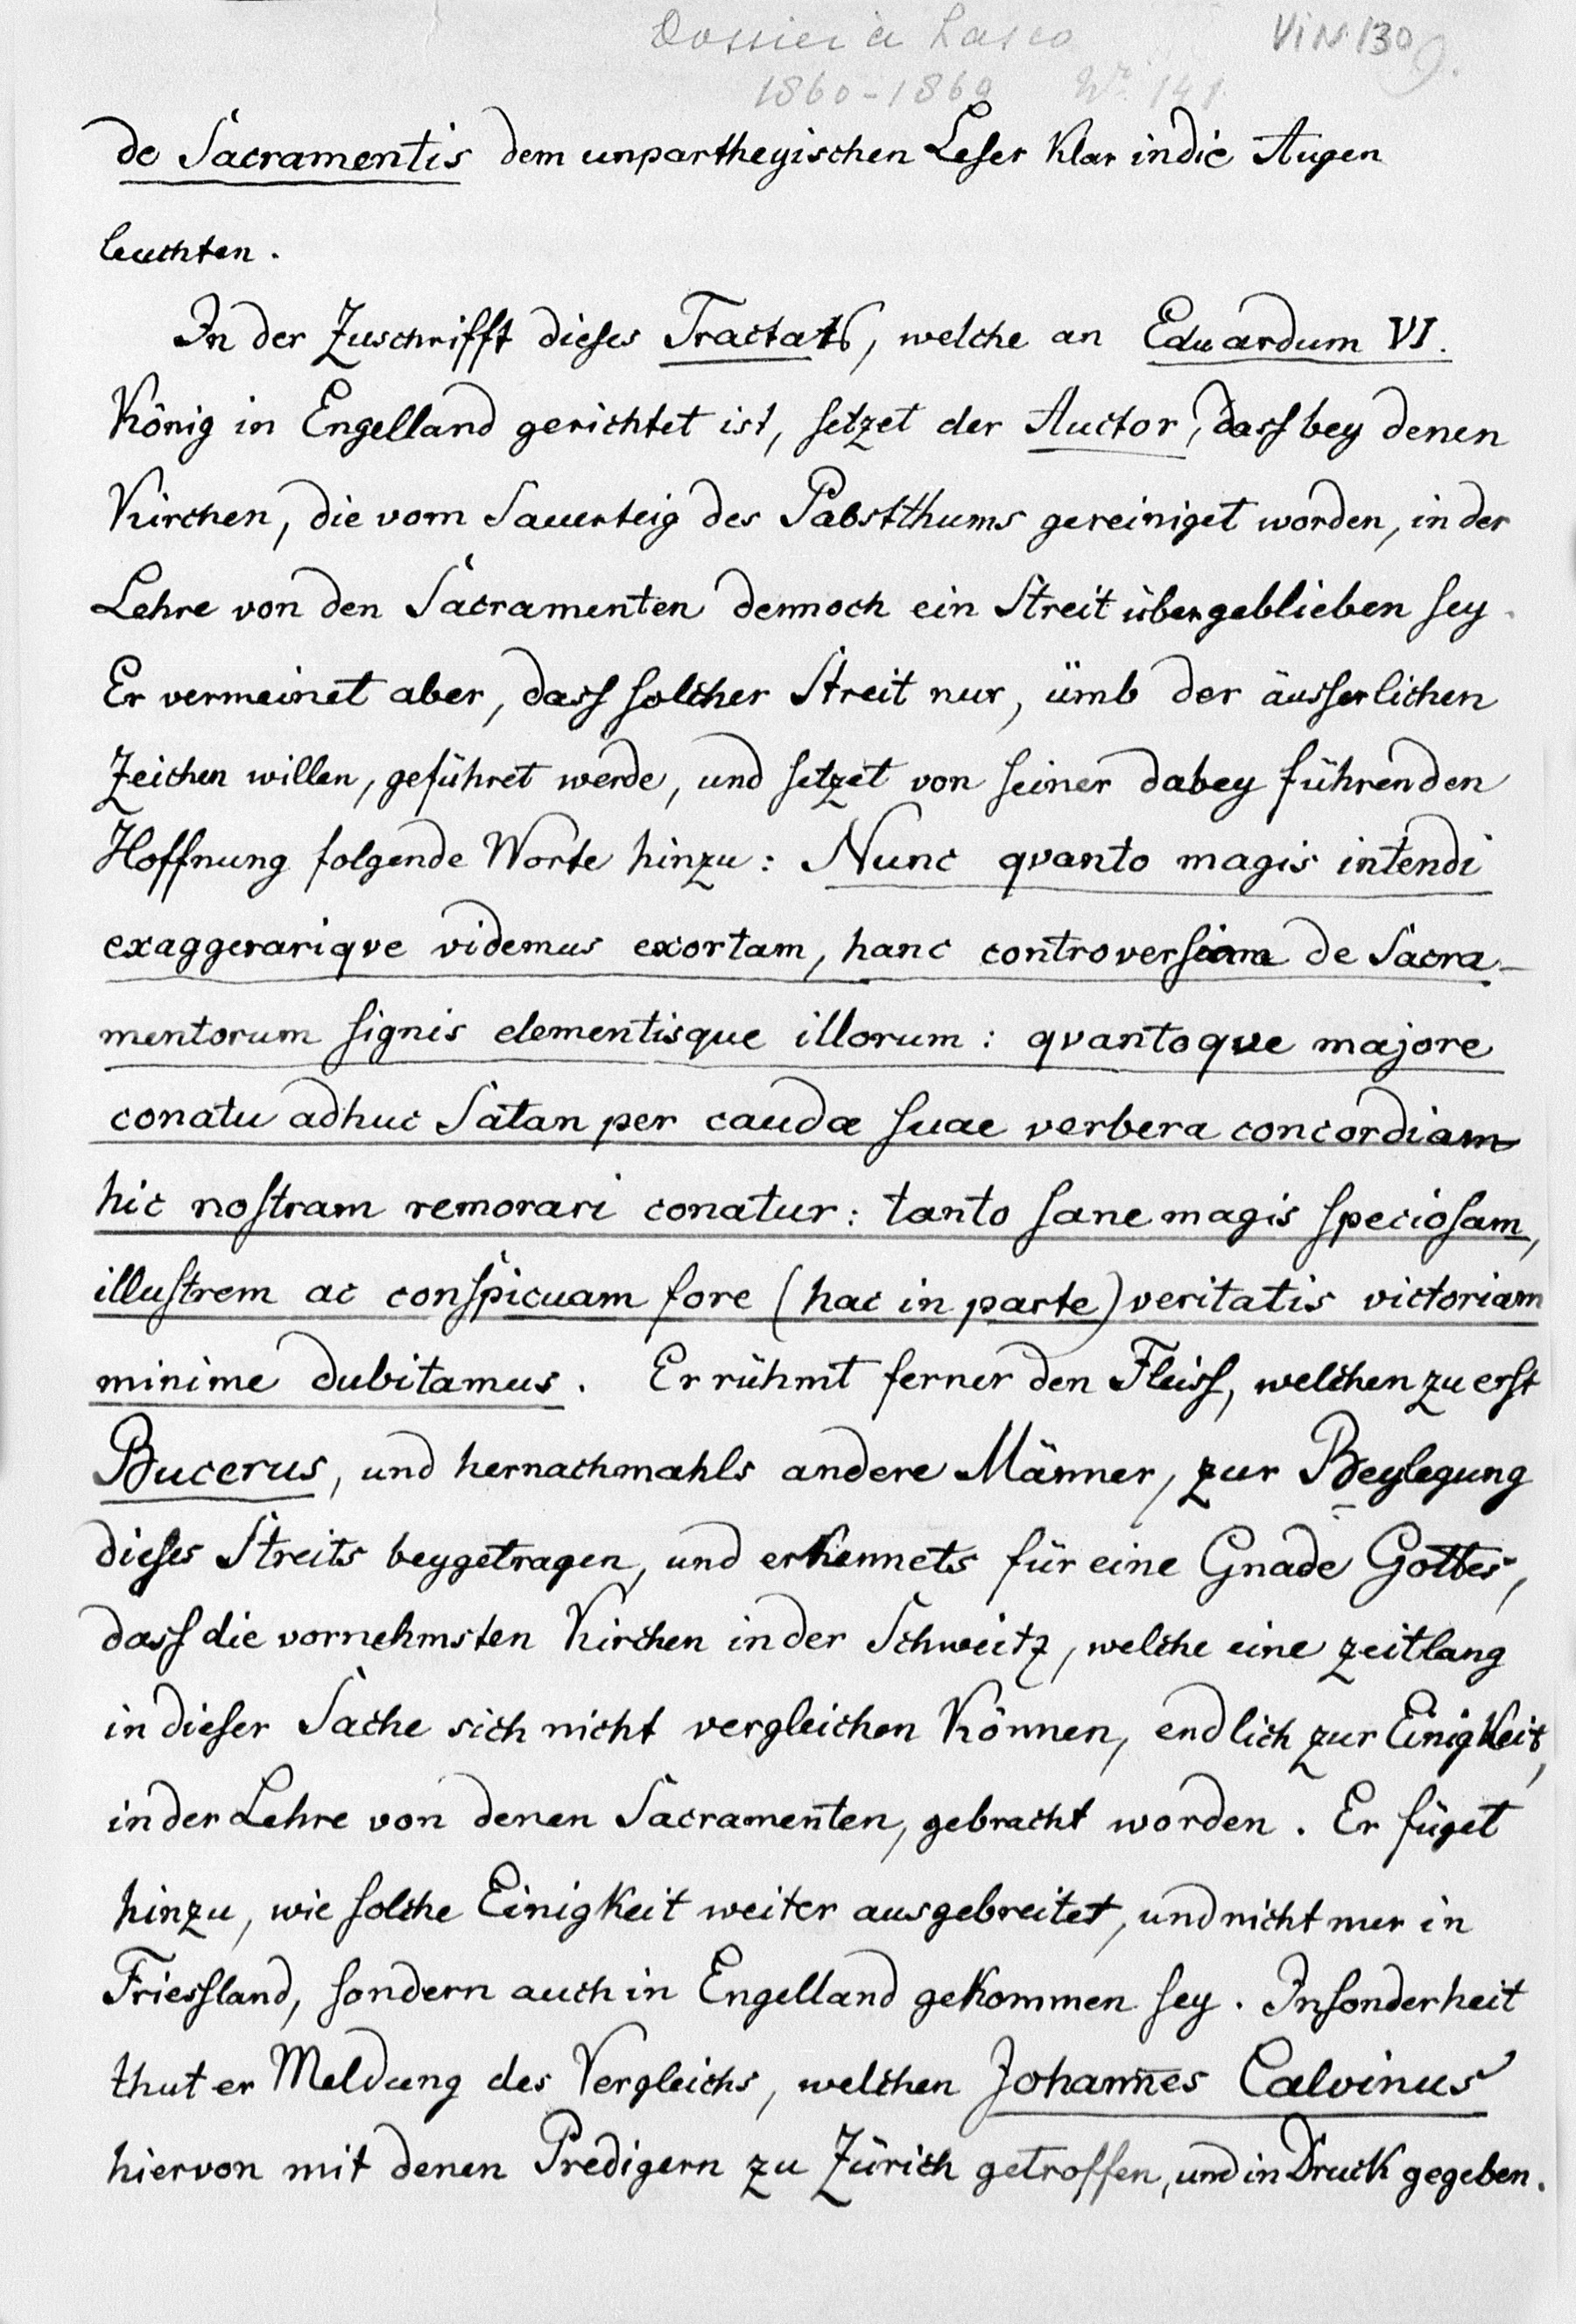 Dossier a Lasco VIN 130
1860-1869 No. 141
de Sacramentis dem unpartheyischen Leser klar in die Augen
leuchten.
In der Zuschrifft dieses Tractats, welche an Eduardum VI.
König in Engelland gerichtet ist, setzet der Auctor, dass bey denen
Kirchen, die vom Sauerteig des Pabstthums gereiniget worden, in der
Lehre von den Sacramenten dennoch ein Streit übergeblieben sey.
Er vermeinet aber, dass solcher Streit nur, ümb der äusserlichen
Zeichen willen, geführet werde, und setzet von seiner dabey führenden
Hoffnung folgende Worte hinzu: Nunc qvanto magis intendi
exaggerariqve videmus exortam, hanc controversiam de Sacra-
mentorum signis elementisque illorum: qvantoqve majore
conatu adhuc Satan per caudæ suae verbera concordiam
hic nostram remorari conatur: tanto sane magis speciosam,
illustrem ac conspicuam fore (hac in parte) veritatis victoriam
minime dubitamus. Er rühmt ferner den Fleiss, welchen zu erst
Bucerus, und hernachmahls andere Männer, zur Beylegung
dieses Streits beygetragen, und erkennets für eine Gnade Gottes,
dass die vornehmsten Kirchen in der Schweitz, welche eine zeitlang
in dieser Sache sich nicht vergleichen können, endlich zur Einigkeit,
in der Lehre von denen Sacramenten, gebracht worden. Er füget
hinzu, wie solche Einigkeit weiter ausgebreitet, und nicht nur in
Friessland, sondern auch in Engelland gekommen sey. Insonderheit
thut er Meldung des Vergleichs, welchen Johan̄es Calvinus
hiervon mit denen Predigern zu Zürich getroffen, und in Druck gegeben.